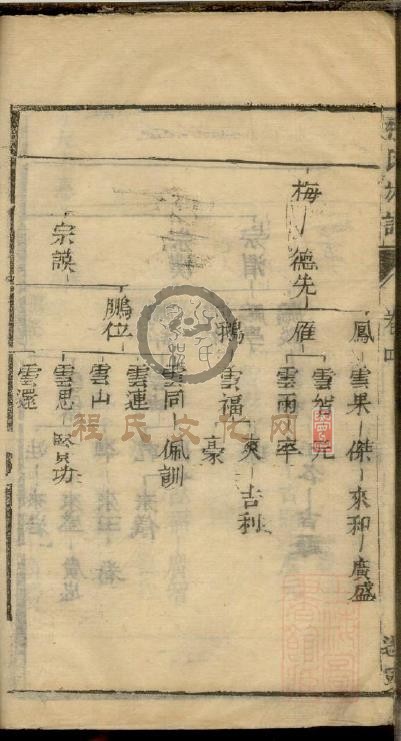 氏族譜
卷四
鳳 雲果 傑 來和 廣盛
梅 德先 雁 雲賀 元
雲雨 率
鵝 雲福 爽 吉利
豪
鵬位 雲同 佩訓
雲連
雲山
宗謨 雲思 賢功
雲還
程氏文化网